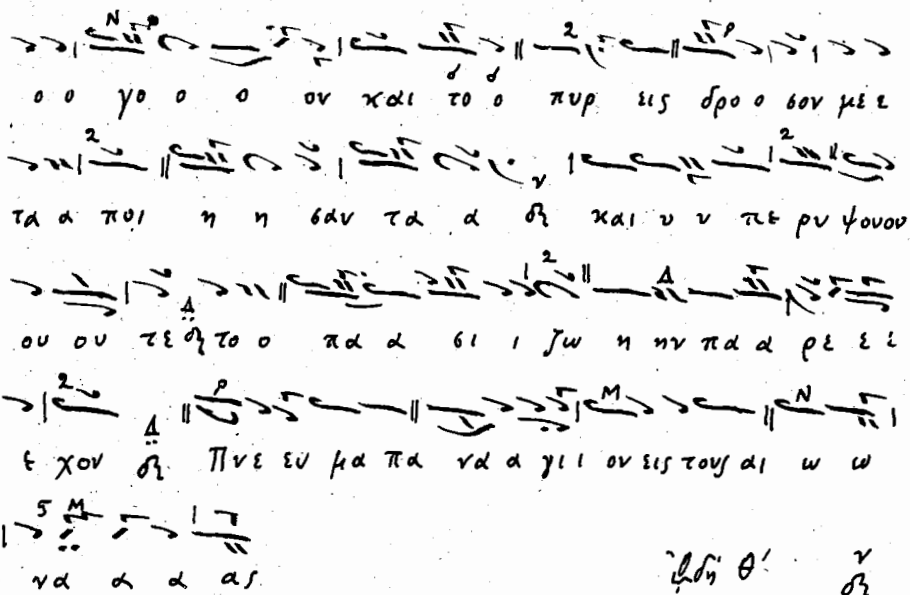 ο ο γο ο ο ον και το ο πυρ εις δρο ο σον με ε
τα α ποι η η σαν τα α δι και υ υ πε ρυ ψουου
ου ου τε δι το ο πα α σι ι ζω η ην πα α ρε ε ε
ε χον δι Πνε ευ μα πα να α γι ι ον εις τους αι ω ω
να α α ας
ᾠδή θ΄